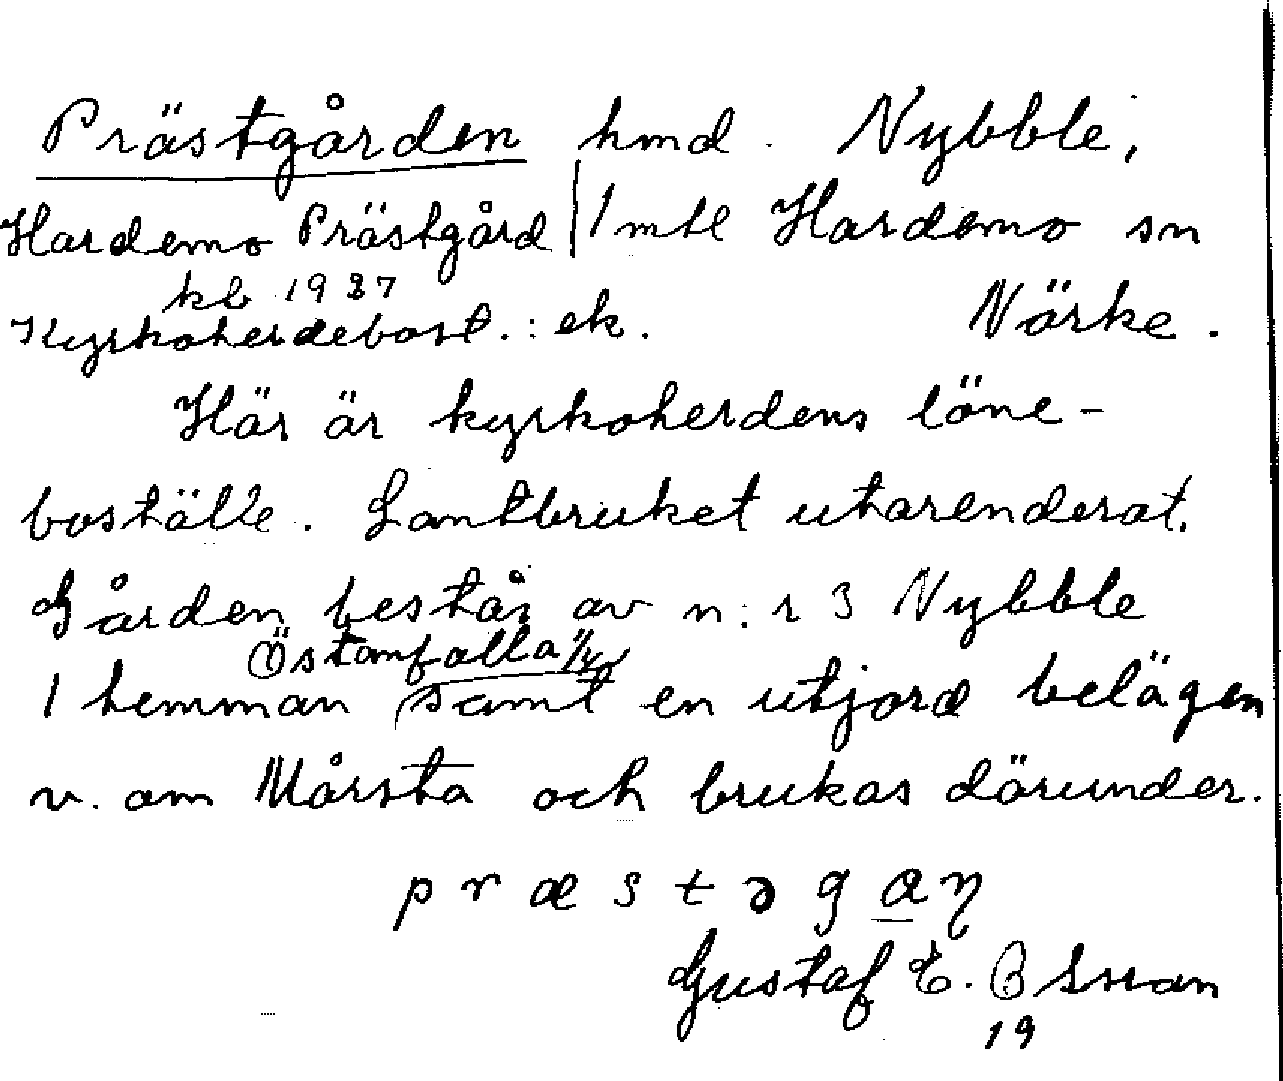 Prästgården hmd. Nybble,
Hardemo Prästgård | 1 mtl Hardemo sn
kb 1937
Kyrkoherdebost. : ek. Närke.
Här är kyrkoherdens löne-
boställe. Lantbruket utarenderat.
Gården består av n:r 3 Nybble
Östanfalla 1/4
1 hemman samt en utjord belägen
v. om Mårsta och brukas därunder.
p r æ s t ə g a η
Gustaf E.
19